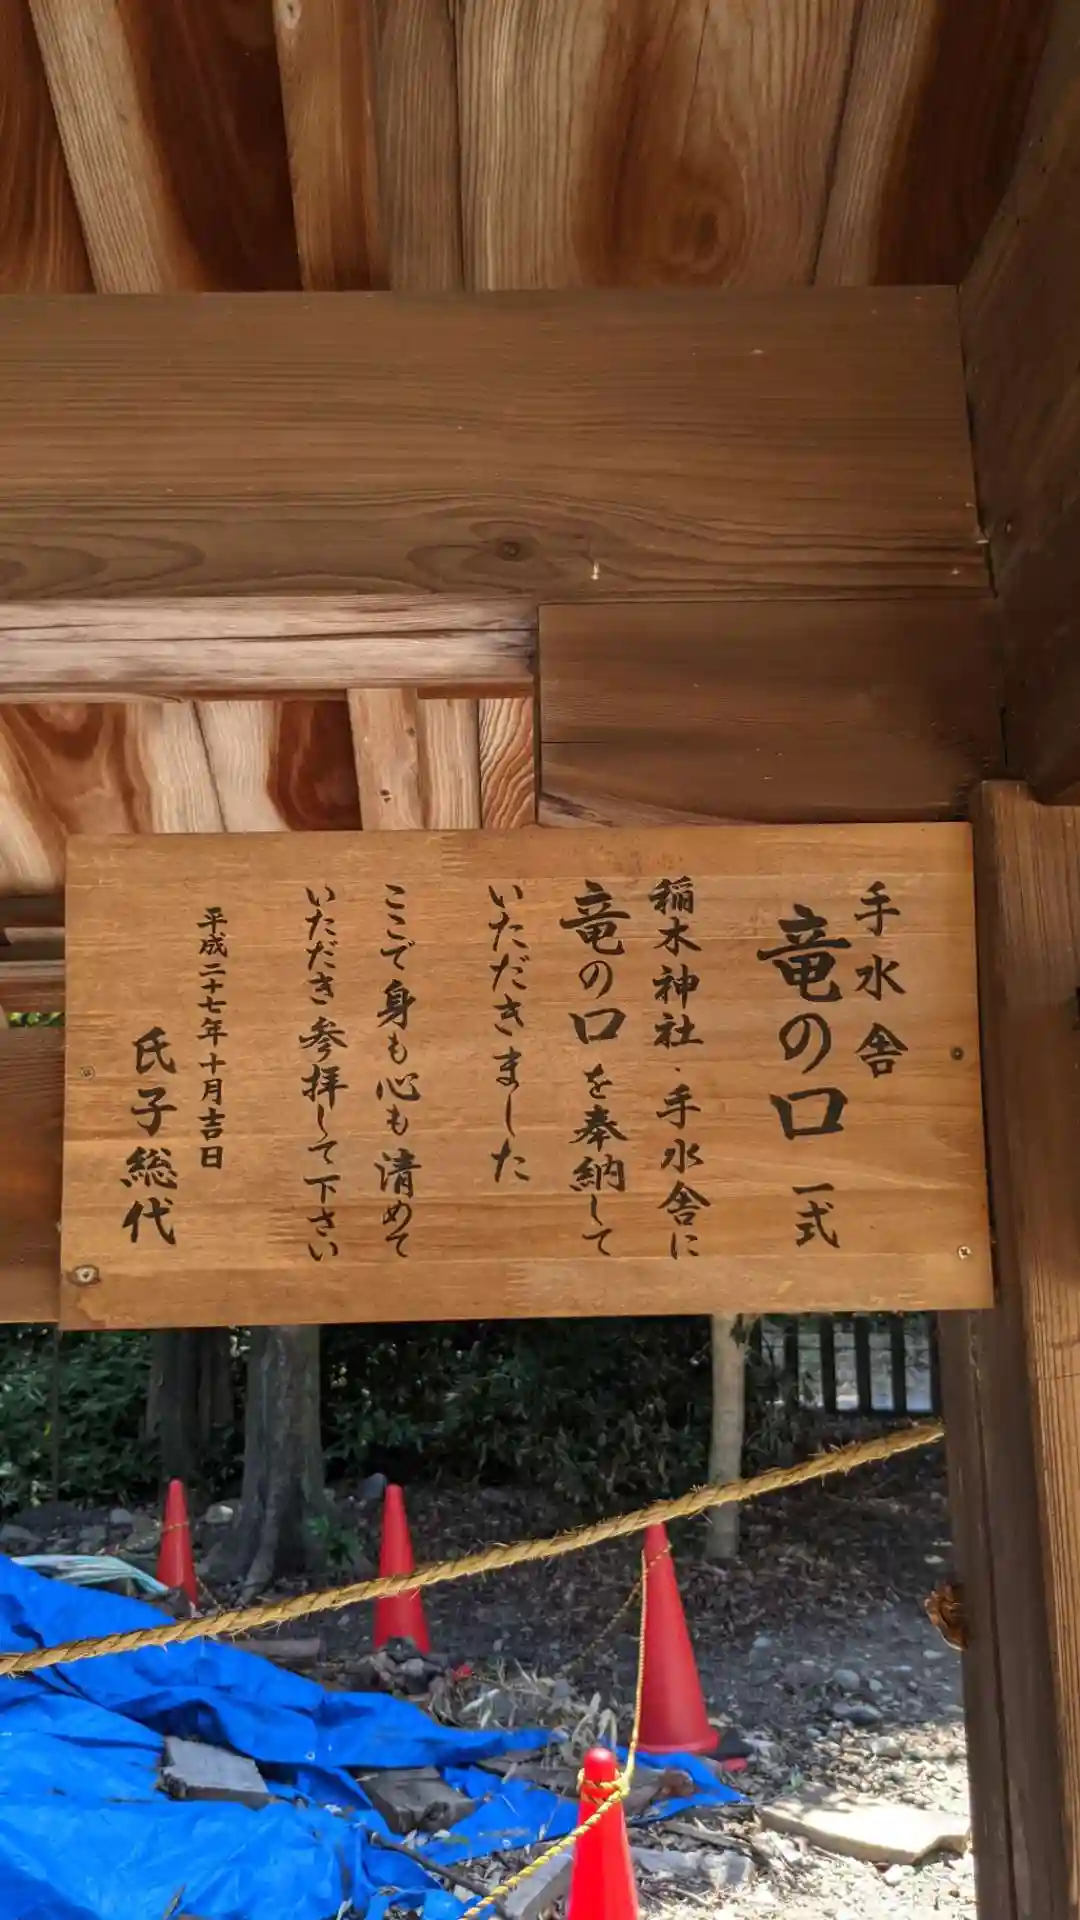 手水舎
竜の口 一式
稲木神社・手水舎に
竜の口を奉納して
いただきました
ここで身も心も清めて
いただき参拝して下さい
平成二十七年十月吉日
氏子総代